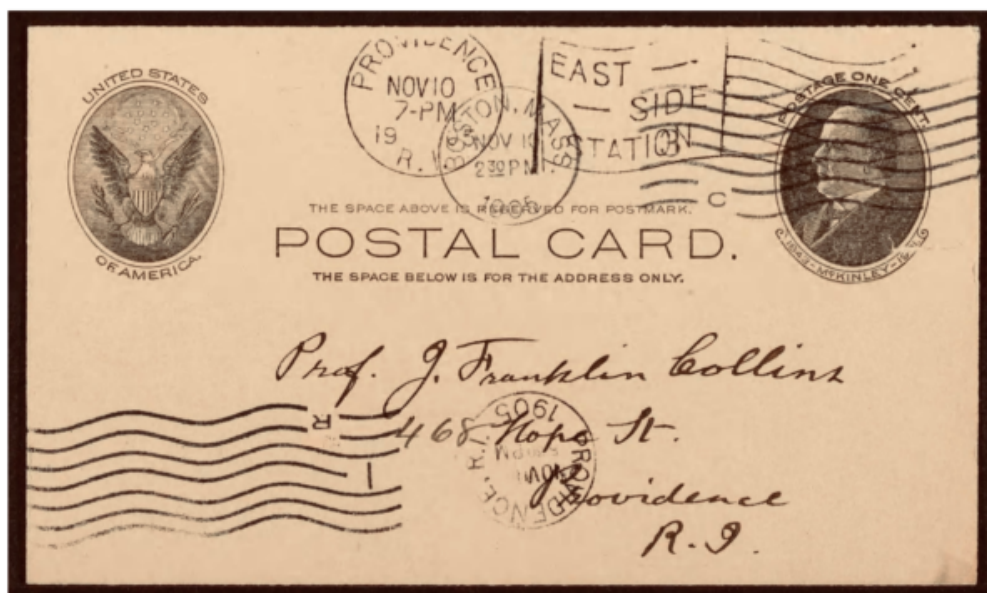 UNITED STATES
OF AMERICA.
PROVIDENCE
NOV 10
7-PM
19
R.I.
BOSTON, MASS.
NOV 10
2 30 PM
1905
EAST
SIDE
STATION
C
POSTAGE ONE CENT.
1843-McKINLEY-
THE SPACE ABOVE IS RESERVED FOR POSTMARK.
POSTAL CARD.
THE SPACE BELOW IS FOR THE ADDRESS ONLY.
Prof. J. Franklin Collins
468 Hope St.
Providence
R.I.
R
I
PROVIDENCE, R.I.
NOV
PM
1905